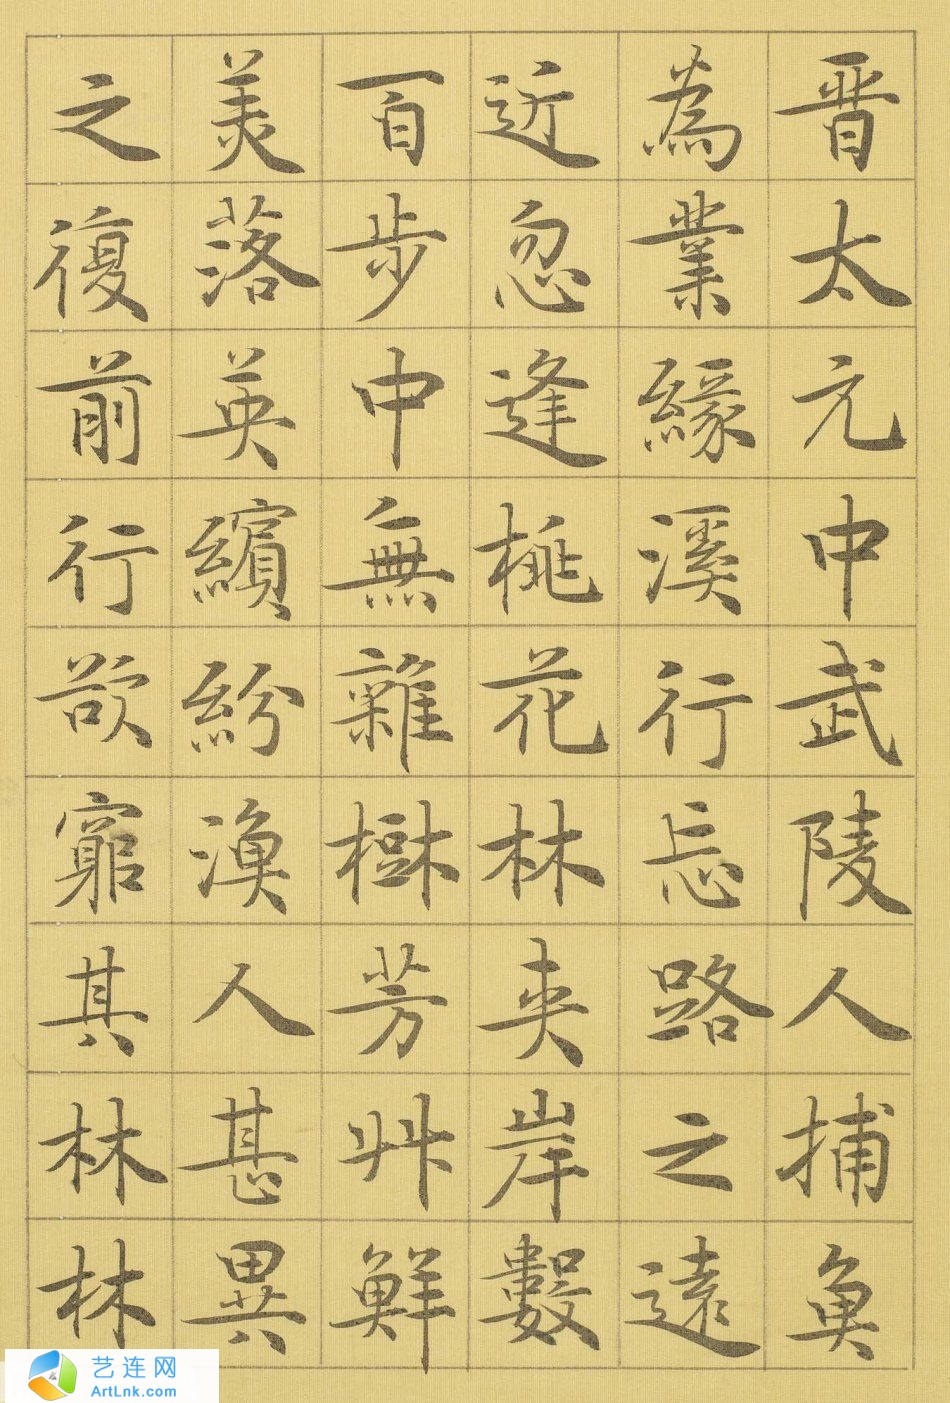 晋太元中武陵人捕魚
為業緣溪行忘路之遠
近忽逢桃花林夾岸數
百步中無雜樹芳艸鮮
美落英繽紛漁人甚異
之復前行欲窮其林林
艺连网
ArtLnk.com